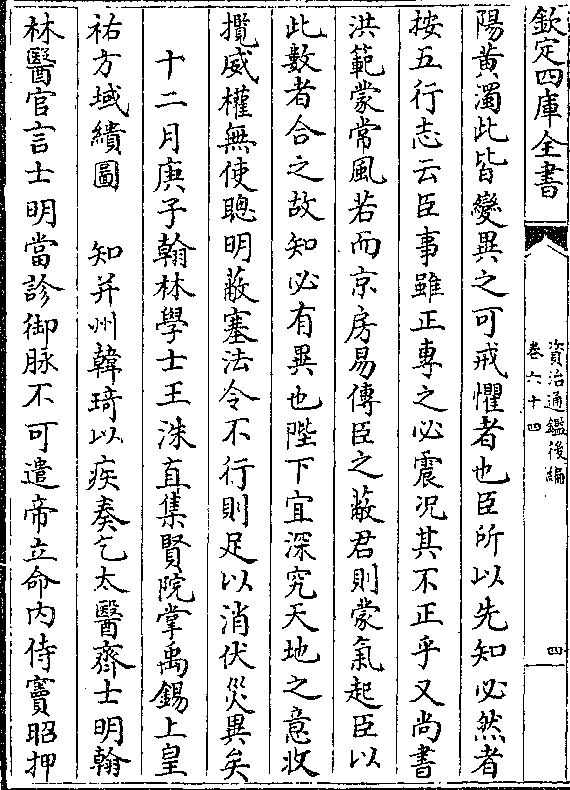 欽定四庫全書
資治通鑑後編
卷六十四
四
陽黃濁此皆變異之可戒懼者也臣所以先知必然者
按五行志云臣事雖正專之必震况其不正乎又尚書
洪範蒙常風若而京房易傳臣之蔽君則蒙氣起臣以
此數者合之故知必有異也陛下宜深究天地之意收
攬威權無使聰明蔽塞法令不行則足以消伏災異矣
十二月庚子翰林學士王洙直集賢院掌禹錫上皇
祐方域繢圖　知并州韓琦以疾奏乞太醫齊士明翰
林醫官言士明當診御脉不可遣帝立命内侍竇昭押